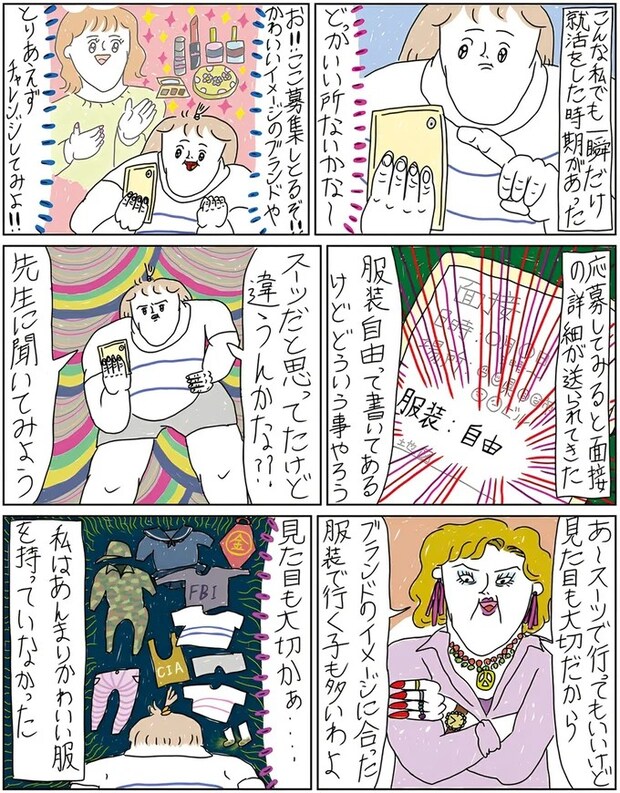 こんな私でも一瞬だけ
就活をした時期があった
どっかいい所ないかな〜
お!!ここ募集しとるぞ!!
かわいいイメージのブランドや
とりあえず
チャレンジしてみよ!!
応募してみると面接
の詳細が送られてきた
面接
日時:〇月〇日
場所
服装:自由
服装自由って書いてある
けどどういう事やろう
スーツだと思ってたけど
違うんかな??
先生に聞いてみよう
あ〜スーツで行ってもいいけど
見た目も大切だから
ブランドのイメージに合った
服装で行く子も多いわよ
見た目も大切かぁ・・・・
金
FBI
CIA
私はあんまりかわいい服
を持っていなかった